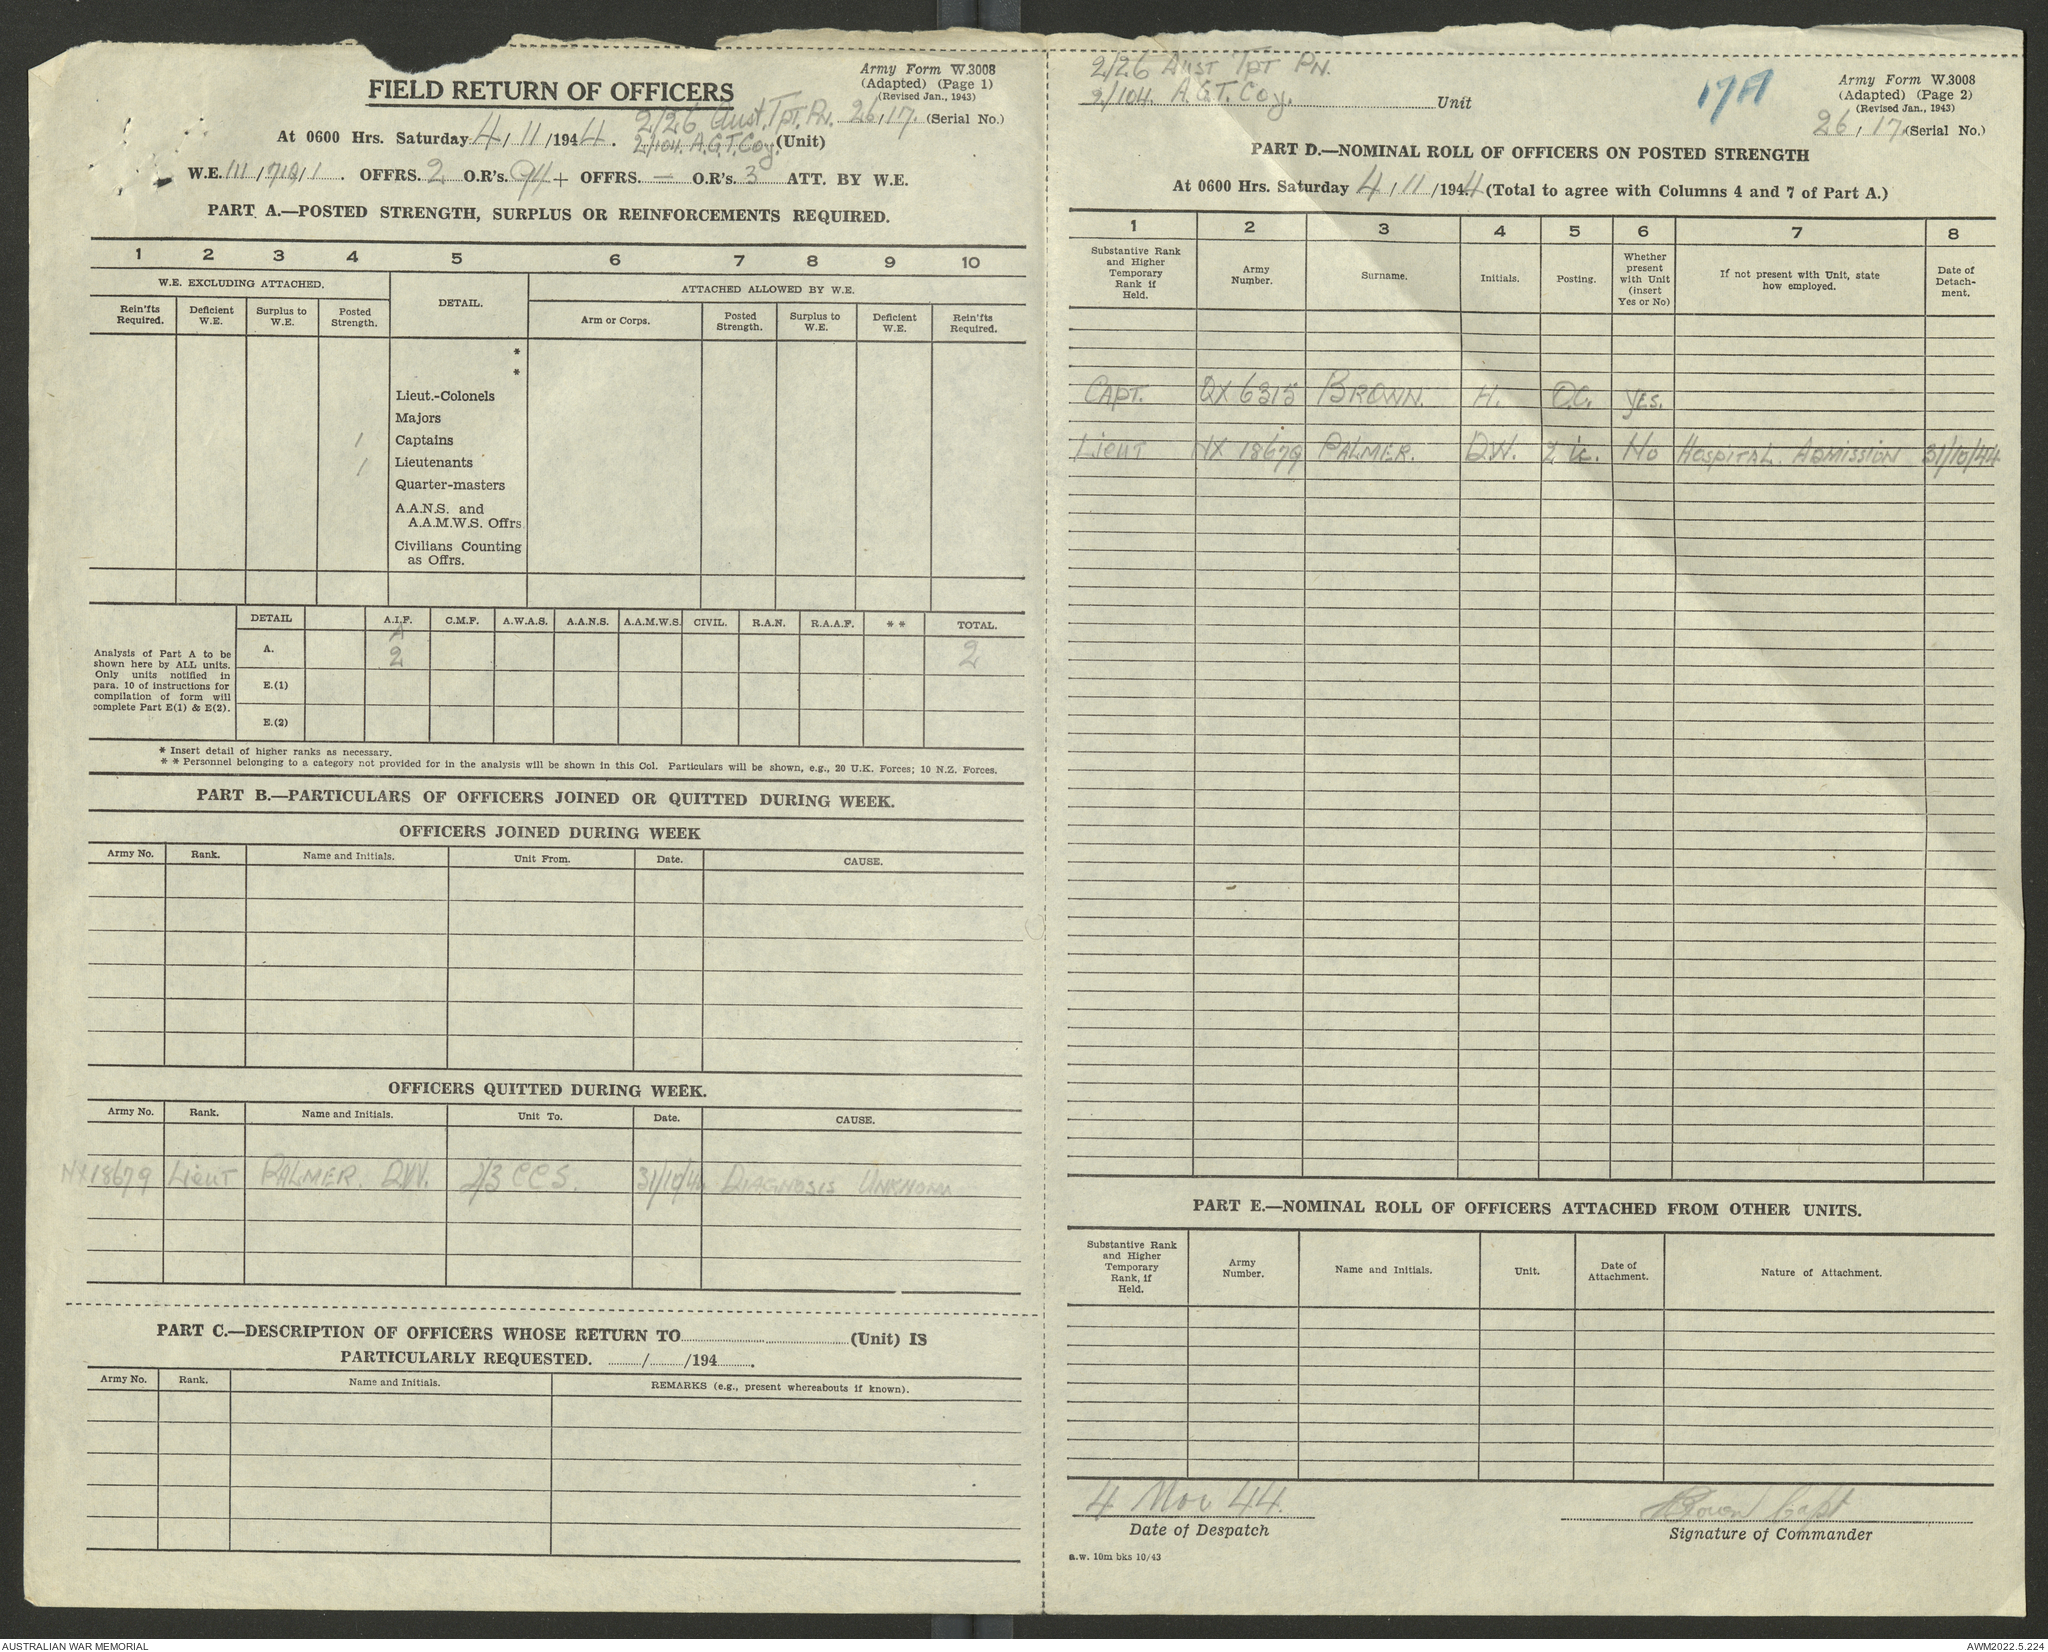 FIELD RETURN OF OFFICERS
Army Form W.3008
(Adapted) (Page 1)
(Revised Jan., 1943)
2/26 Aust. Tpt. Pn. 26/17. (Serial No.)
At 0600 Hrs. Saturday 4/11/1944. 2/104. A.G.T. Coy. (Unit)
W.E. OFFRS. 2 O.R's. 94 + OFFRS. — O.R's. 3 ATT. BY W.E.
PART A.—POSTED STRENGTH, SURPLUS OR REINFORCEMENTS REQUIRED.
1 2 3 4 5 6 7 8 9 10
W.E. EXCLUDING ATTACHED. DETAIL. ATTACHED ALLOWED BY W.E.
Rein'fts Required. Deficient W.E. Surplus to W.E. Posted Strength. Arm or Corps. Posted Strength. Surplus to W.E. Deficient W.E. Rein'fts Required.
*
*
Lieut.-Colonels
Majors
1 Captains
1 Lieutenants
Quarter-masters
A.A.N.S. and
A.A.M.W.S. Offrs
Civilians Counting
as Offrs.
DETAIL A.I.F. C.M.F. A.W.A.S. A.A.N.S. A.A.M.W.S. CIVIL. R.A.N. R.A.A.F. * * TOTAL.
Analysis of Part A to be
shown here by ALL units.
Only units notified in
para. 10 of instructions for
compilation of form will
complete Part E(1) & E(2).
A. 2 2
E.(1)
E.(2)
* Insert detail of higher ranks as necessary.
* * Personnel belonging to a category not provided for in the analysis will be shown in this Col. Particulars will be shown, e.g., 20 U.K. Forces; 10 N.Z. Forces.
PART B.—PARTICULARS OF OFFICERS JOINED OR QUITTED DURING WEEK.
OFFICERS JOINED DURING WEEK
Army No. Rank. Name and Initials. Unit From. Date. CAUSE.
OFFICERS QUITTED DURING WEEK.
Army No. Rank. Name and Initials. Unit To. Date. CAUSE.
NX18679 Lieut PALMER. D.W. 2/3 CCS. 31/10/44 DIAGNOSIS UNKNOWN
PART C.—DESCRIPTION OF OFFICERS WHOSE RETURN TO (Unit) IS
PARTICULARLY REQUESTED. / /194 .
Army No. Rank. Name and Initials. REMARKS (e.g., present whereabouts if known).
2/26 Aust Tpt Pn.
2/104. A.G.T. Coy. Unit
17A
Army Form W.3008
(Adapted) (Page 2)
(Revised Jan., 1943)
26/17. (Serial No.)
PART D.—NOMINAL ROLL OF OFFICERS ON POSTED STRENGTH
At 0600 Hrs. Saturday 4/11/1944 (Total to agree with Columns 4 and 7 of Part A.)
1 2 3 4 5 6 7 8
Substantive Rank and Higher Temporary Rank if Held. Army Number. Surname. Initials. Posting. Whether present with Unit (insert Yes or No) If not present with Unit, state how employed. Date of Detach- ment.
CAPT. QX 6315 BROWN. H. O.C. Yes.
Lieut NX 18679 PALMER. D.W. 2 i/c. No HOSPITAL. ADMISSION 31/10/44
PART E.—NOMINAL ROLL OF OFFICERS ATTACHED FROM OTHER UNITS.
Substantive Rank and Higher Temporary Rank, if Held. Army Number. Name and Initials. Unit. Date of Attachment. Nature of Attachment.
4 Nov 44.
Date of Despatch
HBrown Capt
Signature of Commander
a.w. 10m bks 10/43
AUSTRALIAN WAR MEMORIAL
AWM2022.5.224